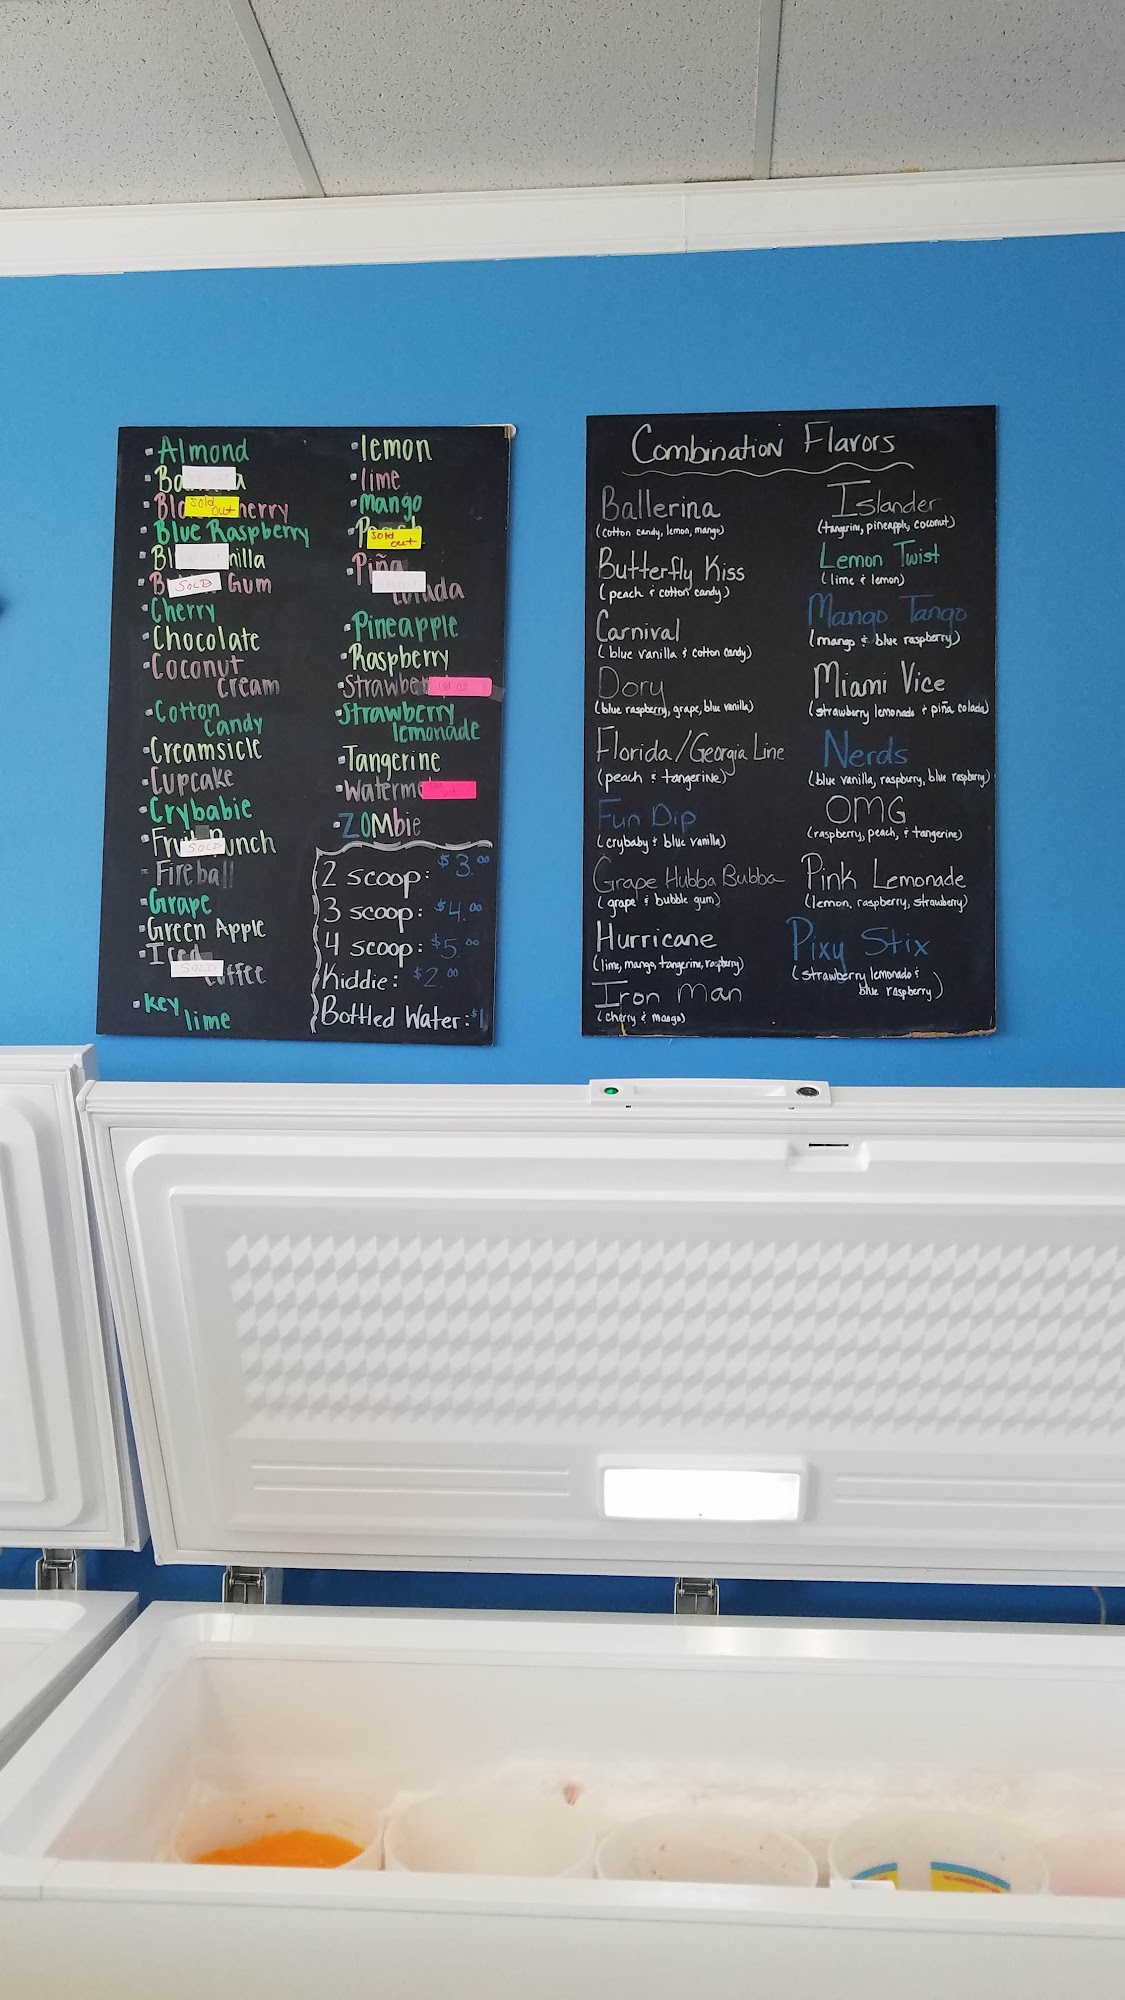 Almond
Blue Raspberry
Sold
out
SOLD
Gum
Cherry
Chocolate
Coconut
Cream
Cotton
Candy
Creamsicle
Cupcake
Crybabie
SOLD
Fireball
Grape
Green Apple
SOLD
key
lime
lemon
lime
mango
Sold
out
Piña
Pineapple
Raspberry
Strawberry
lemonade
Tangerine
ZOMbie
2 scoop: $3.00
3 scoop: $4.00
4 scoop: $5.00
Kiddie: $2.00
Bottled Water: $1
Combination Flavors
Ballerina
(cotton candy, lemon, mango)
Butterfly Kiss
(peach & cotton candy)
Carnival
(blue vanilla & cotton candy)
Dory
(blue raspberry, grape, blue vanilla)
Florida/Georgia Line
(peach & tangerine)
Fun Dip
(crybaby & blue vanilla)
Grape Hubba Bubba
(grape & bubble gum)
Hurricane
(lime, mango, tangerine, raspberry)
Iron Man
(cherry & mango)
Islander
(tangerine, pineapple, coconut)
Lemon Twist
(lime & lemon)
Mango Tango
(mango & blue raspberry)
Miami Vice
(strawberry lemonade & piña colada)
Nerds
(blue vanilla, raspburry, blue raspberry)
OMG
(raspberry, peach, & tangerine)
Pink Lemonade
(lemon, raspberry, strawberry)
Pixy Stix
(strawberry lemonade &
blue raspberry)